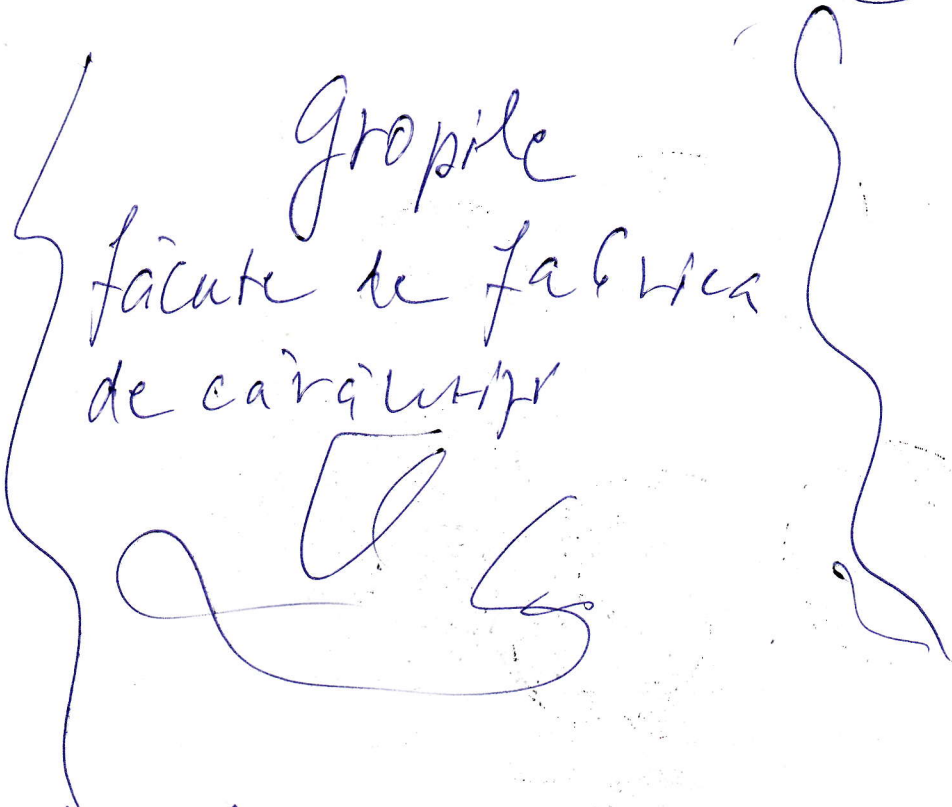 Gropile
făcute de fabrica
de cărămizi